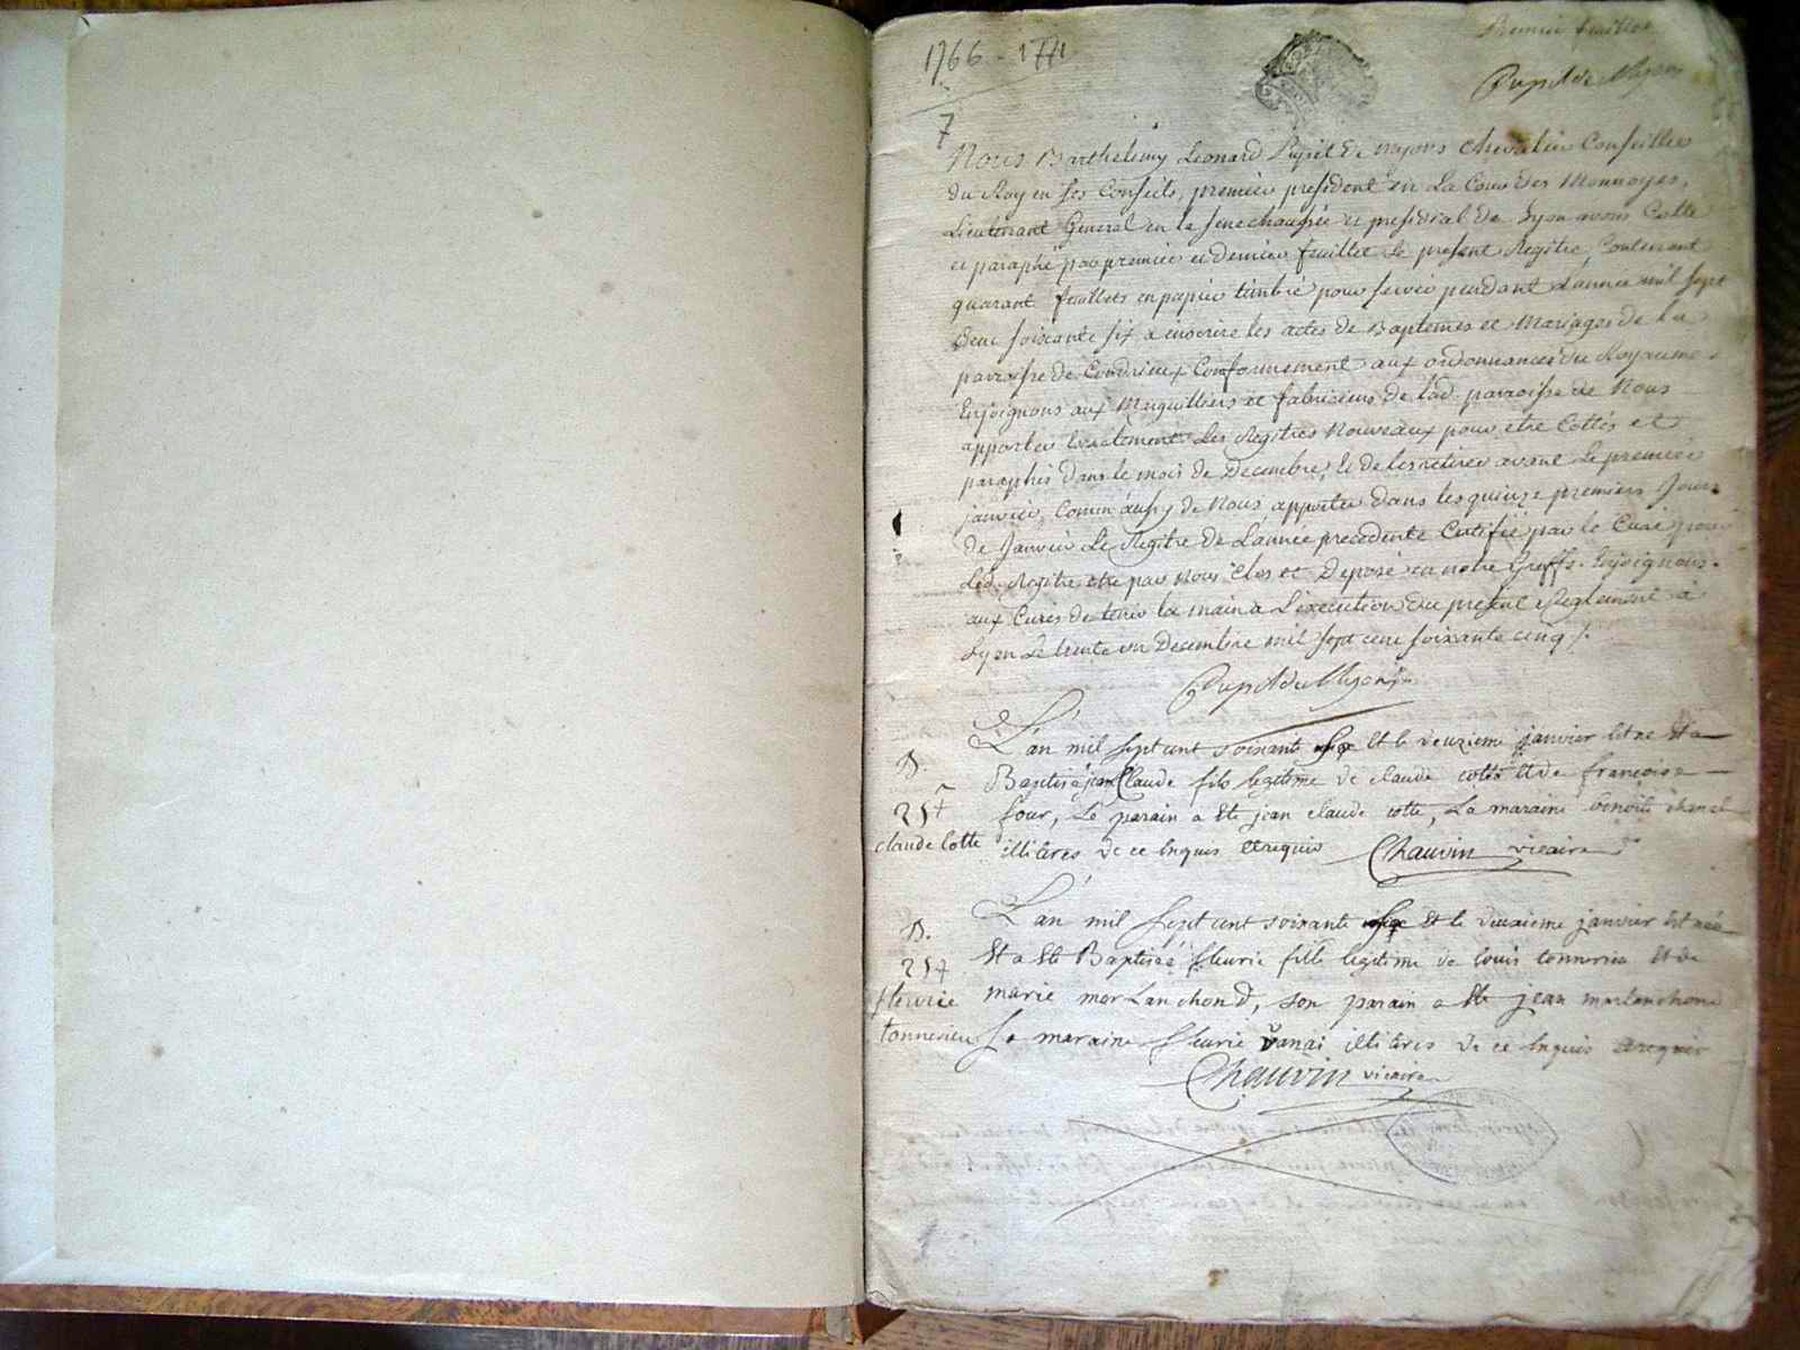 Premier feuillet
1766 - 1771
Pupil de Myons
7
Nous Barthelemy Leonard Pupil de myons Chevalier Conseiller
du Roy en ses Conseils, premier president en La Cour des Monnoyes,
Lieutenant General en la senechaussée et presidial de Lyon avons Cotté
et paraphé par premier et dernier feuillet Le present Regitre, Contenant
quarant feuillets en papier timbré pour servir pendant L'année mil sept
Cent soixante six a inscrire les actes de Baptemes et Mariages de la
parroisse de Condrieux Conformement aux ordonnances du Royaume
Enjoignons aux Marguilliers et fabriciens de lad. parroisse de Nous
apporter Exactement Les Regitres Nouveaux pour etre Cottés et
paraphés dans le mois de Decembre, & de les retirer avant Le premier
janvier, Comm'aussy de Nous apporter dans les quinze premiers Jours
de Janvier Le Regitre de L'année precedente Certifié par le Curé pour
Led. Regitre etre par Nous Clos et Deposé en notre Greffe. Enjoignons
aux Curés de tenir la main a L'execution du present Reglement a
Lyon Le trente un Decembre mil sept cent soixante cinq /.
Pupil de Myons
L'an mil sept cent soixante six Et le deuxieme janvier Est né Et a
B. Baptisé jean Claude fils legitime de claude cotte Et de françoise
four, Le parain a Eté jean claude cotte, La maraine benoite
claude Cotte illiteres de ce Enquis Et requis Chauvin vicaire
L'an mil sept cent soixante six Et le deuxieme janvier Est née
B. Et a Eté Baptisée fleurie fille legitime de louis tonnerieu Et de
fleurie marie marlanchond, son parain a Eté jean marlanchond
tonnerieu Sa maraine fleurie vanai illiteres de ce Enquis Et requis
Chauvin vicaire